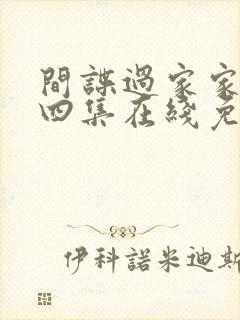 間諜過家家
四集在綫免
伊科諾米迪斯